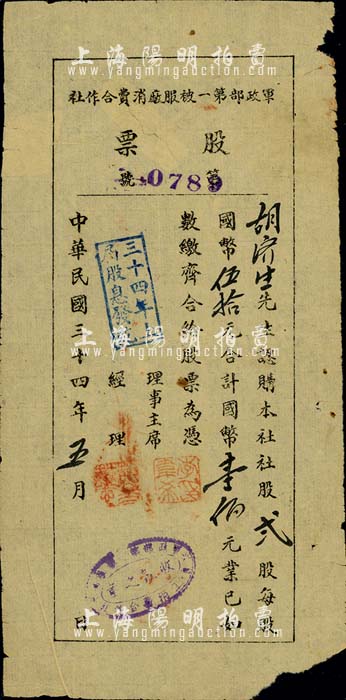 上海陽明拍賣
www.yangmingauction.com
軍政部第一被服廠消費合作社
股票
第0789號
胡濟生先生認購本社社股弍股每股
國幣伍拾元合計國幣壹佰元業已如
數繳齊合給股票為憑
理事主席
經理
三十四年
局股息發訖
中華民國三十四年五月 日
上海陽明拍賣
www.yangmingauction.com
上海陽明拍賣
www.yangmingauction.com